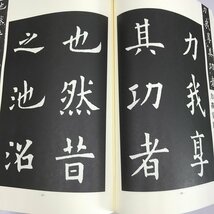 力我享
其功者
也然昔
之池沼